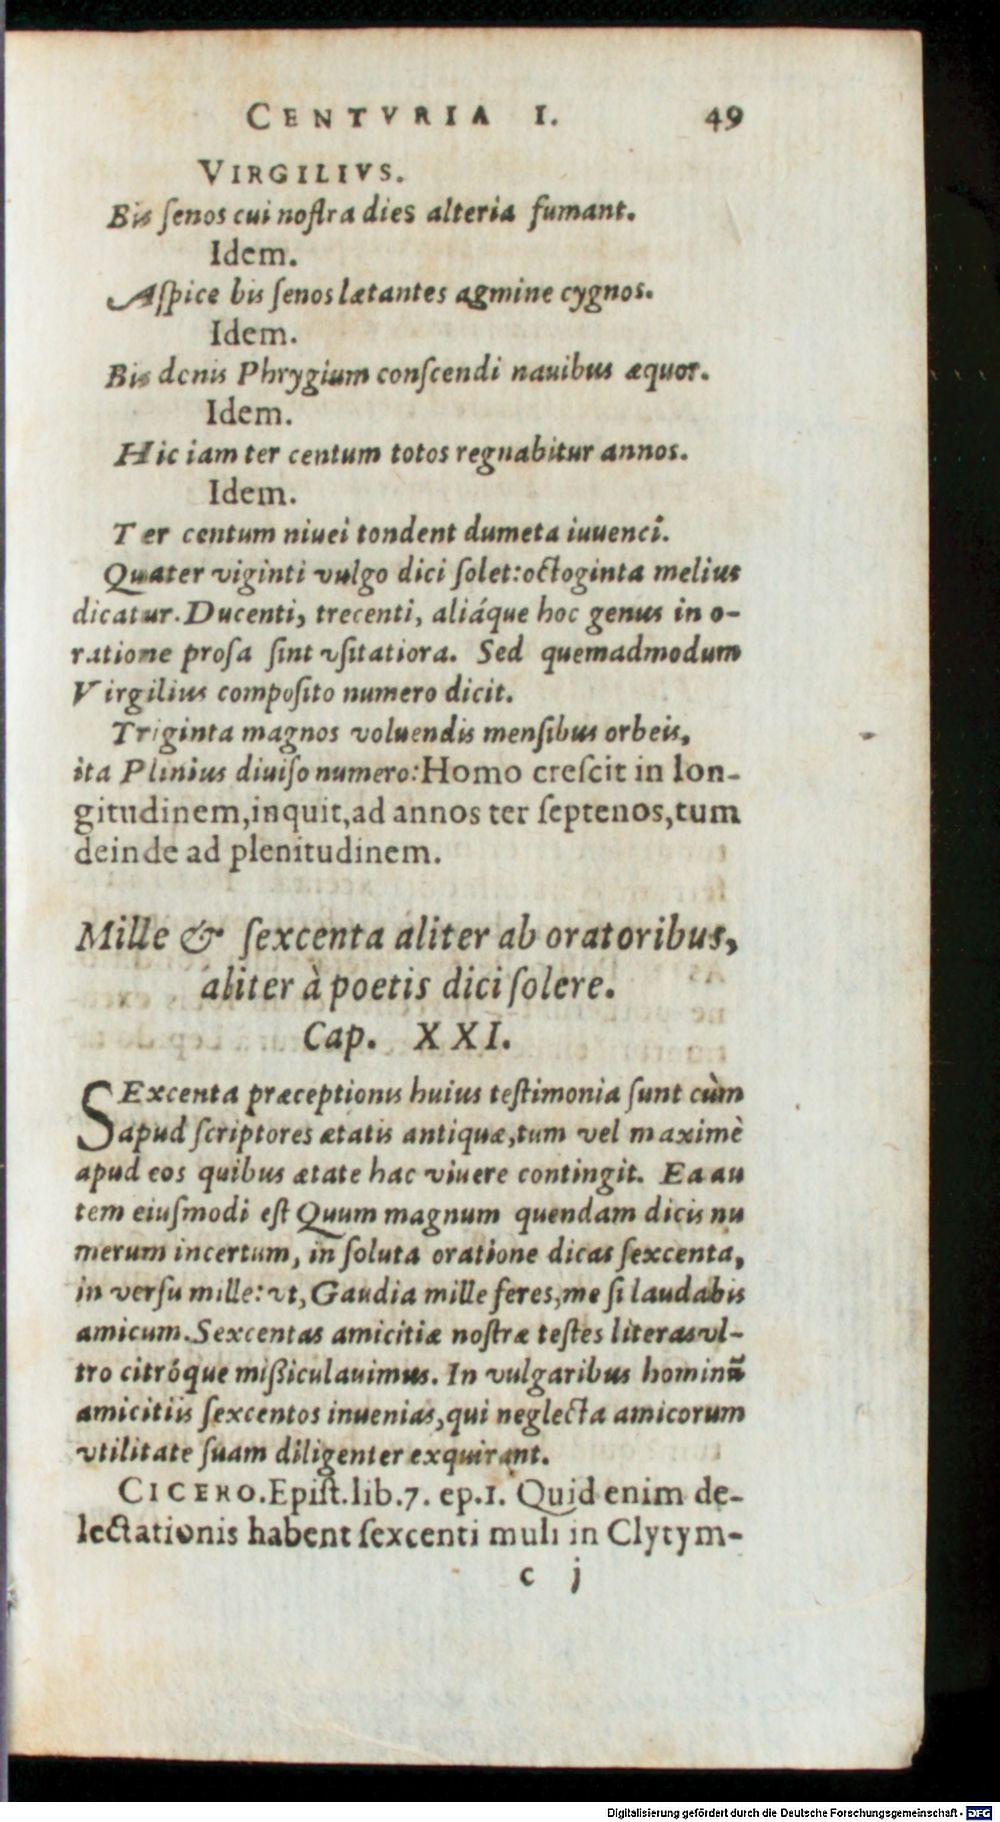 CENTVRIA I. 49
VIRGILIVS.
Bis ſenos cui noſtra dies alteria fumant.
Idem.
Aſpice bis ſenos lætantes agmine cygnos.
Idem.
Bis denis Phrygium conſcendi nauibus æquor.
Idem.
Hic iam ter centum totos regnabitur annos.
Idem.
Ter centum niuei tondent dumeta iuuenci.
Quater viginti vulgo dici ſolet: octoginta melius
dicatur. Ducenti, trecenti, aliáque hoc genus in o-
ratione proſa ſint vſitatiora. Sed quemadmodum
Virgilius compoſito numero dicit.
Triginta magnos voluendis menſibus orbeis,
ita Plinius diuiſo numero: Homo creſcit in lon-
gitudinem, inquit, ad annos ter ſeptenos, tum
deinde ad plenitudinem.
Mille & ſexcenta aliter ab oratoribus,
aliter à poetis dici ſolere.
Cap. XXI.
SExcenta præceptionis huius teſtimonia ſunt cùm
apud ſcriptores ætatis antiquæ, tum vel maximè
apud eos quibus ætate hac viuere contingit. Ea au
tem eiuſmodi eſt Quum magnum quendam dicis nu
merum incertum, in ſoluta oratione dicas ſexcenta,
in verſu mille: vt, Gaudia mille feres, me ſi laudabis
amicum. Sexcentas amicitiæ noſtræ teſtes literas vl-
tro citróque miſsiculauimus. In vulgaribus hominũ
amicitiis ſexcentos inuenias, qui neglecta amicorum
vtilitate ſuam diligenter exquirant.
CICERO. Epiſt. lib. 7. ep. 1. Quid enim de-
lectationis habent ſexcenti muli in Clytym-
c j
Digitalisierung gefördert durch die Deutsche Forschungsgemeinschaft - DFG